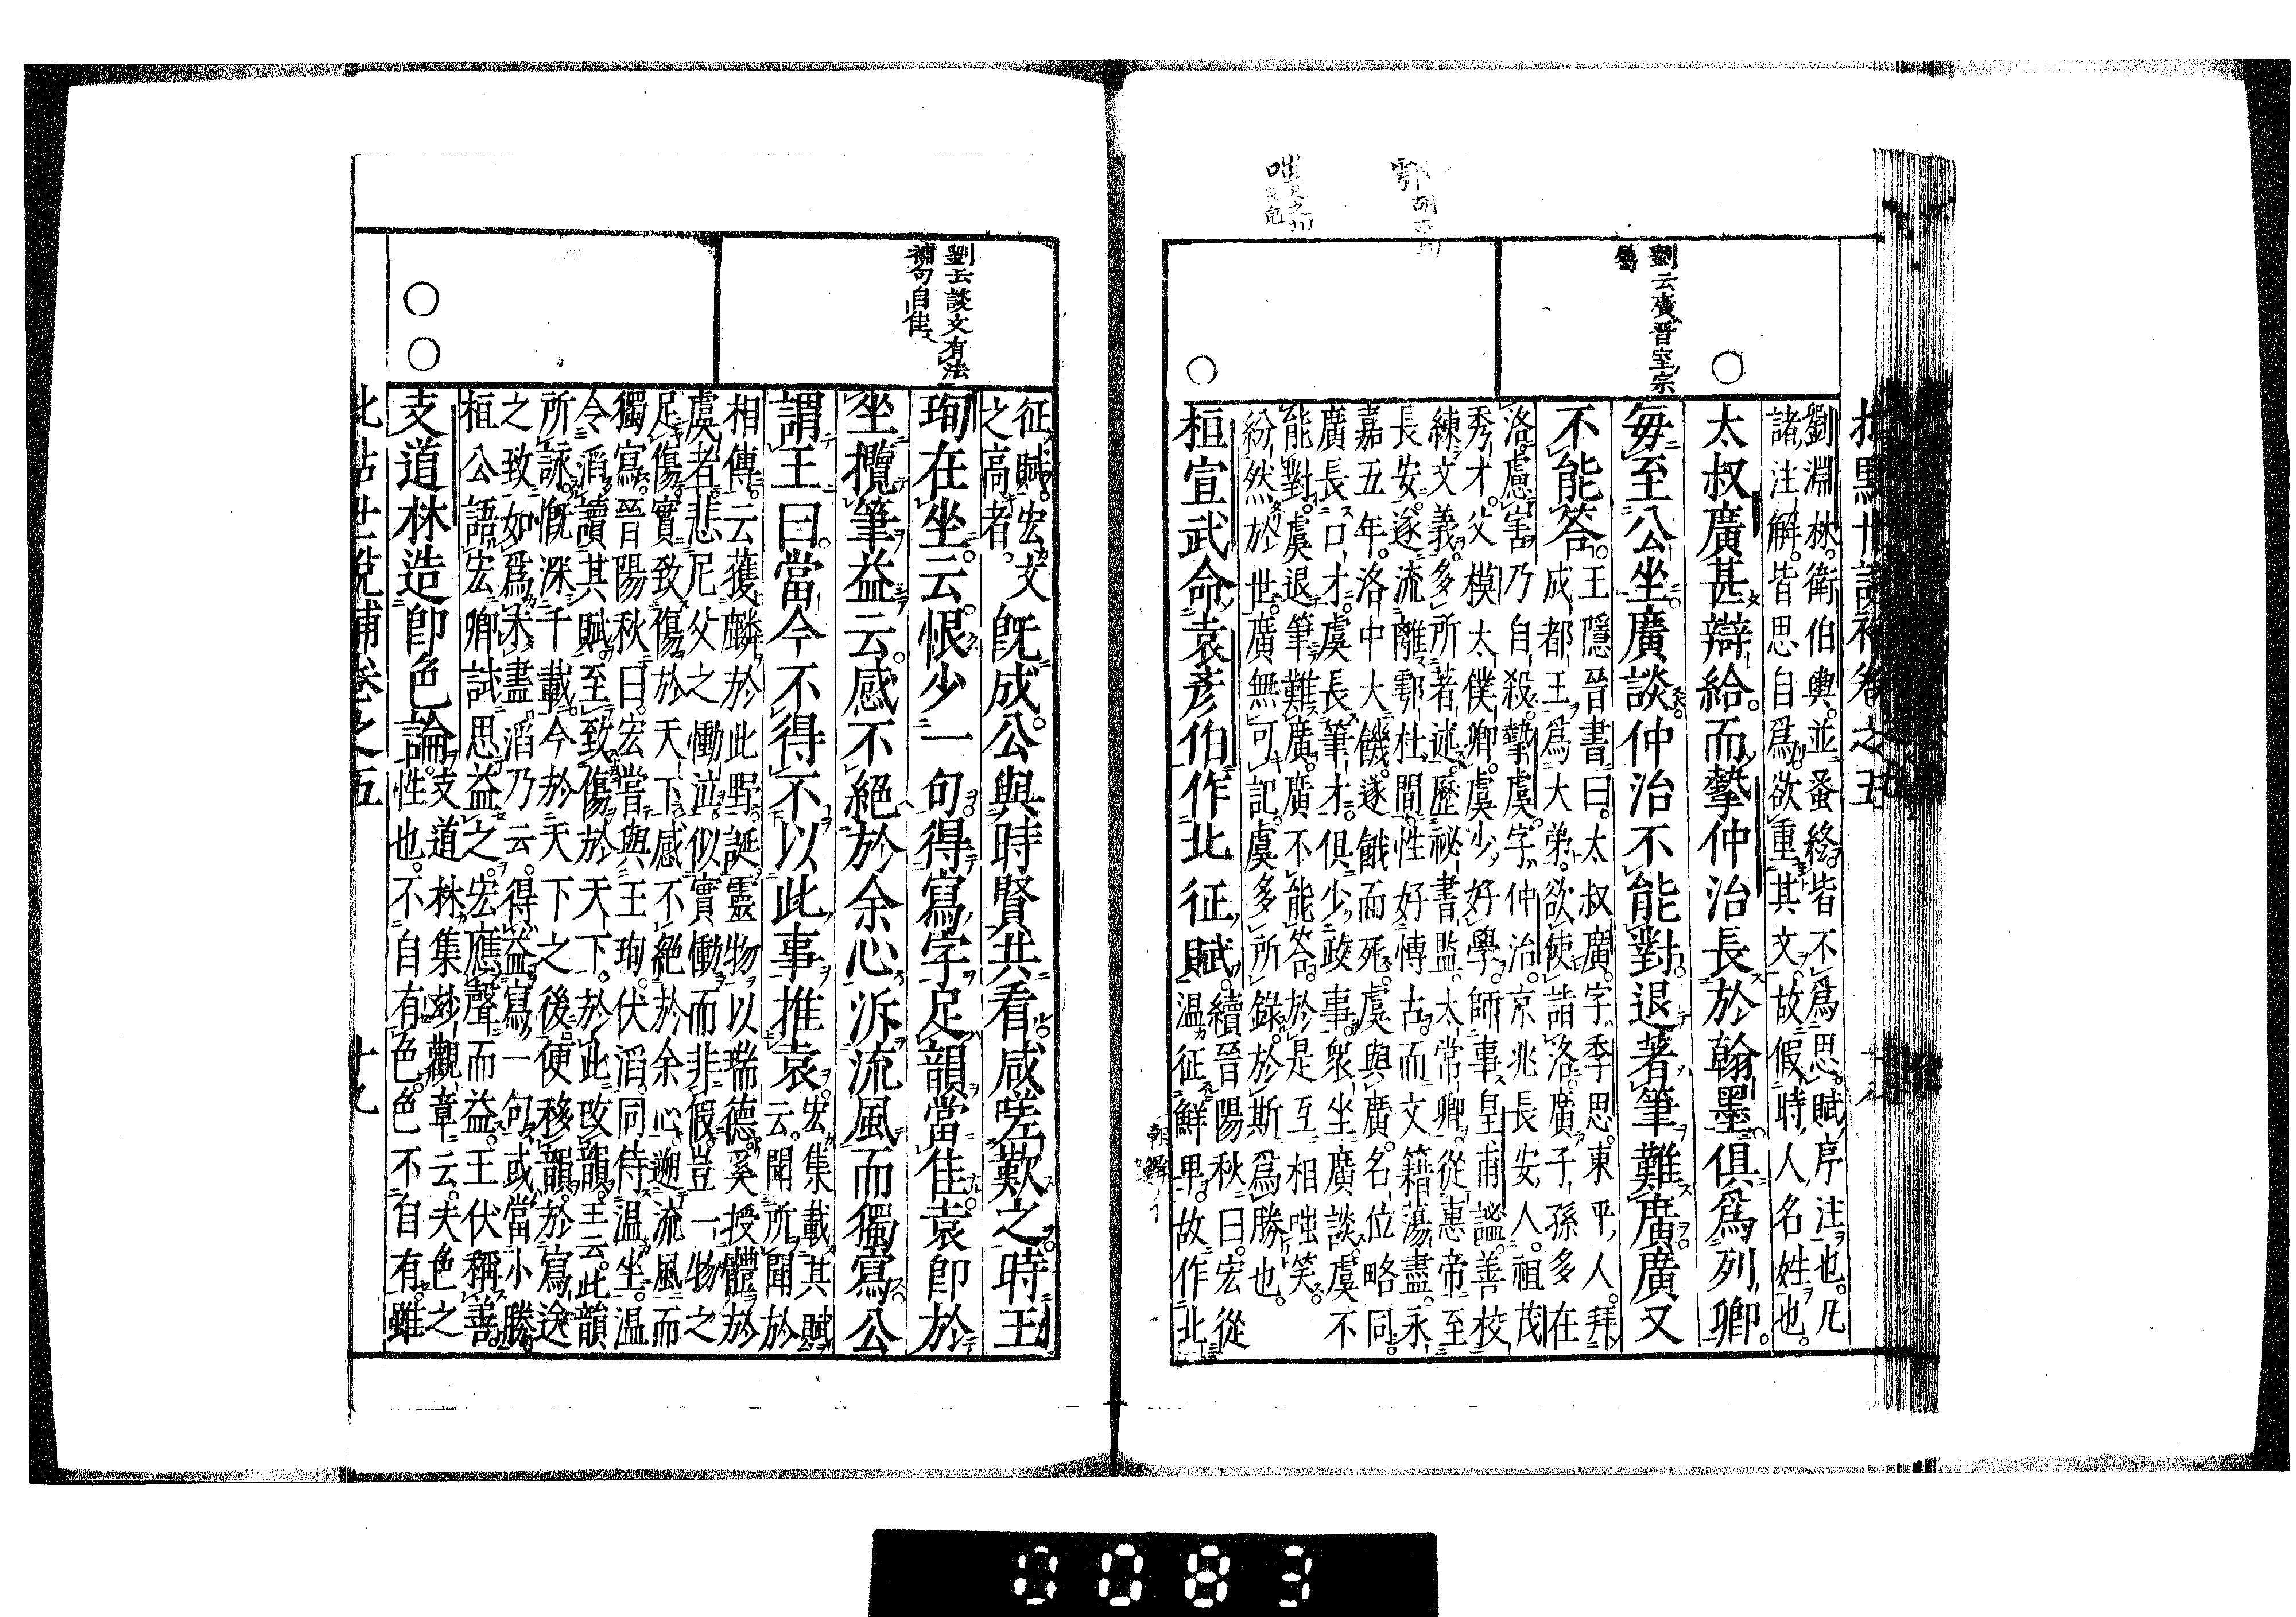 劉淵林衛伯輿並蚤終皆不爲思賦序注也凡
諸注解皆思自爲欲重其文故假時人名姓也
太叔廣甚辯給而摯仲治長於翰墨俱爲列卿
每至公坐廣談仲治不能對退著筆難廣廣又
不能答王隱晉書曰太叔廣字季思東平人拜
成都王爲大弟欲使詣洛廣子孫多在
洛慮害乃自殺摯虞字仲治京兆長安人祖茂
秀才父模太僕卿虞少好學師事皇甫謐善校
練文義多所著述歷祕書監太常卿從惠帝至
長安遂流離鄠杜間性好博古而文籍蕩盡永
嘉五年洛中大饑遂餓而死虞與廣名位略同
廣長口才虞長筆才俱少政事衆坐廣談虞不
能對虞退筆難廣廣不能答於是互相嗤笑
紛然於世廣無可記虞多所錄於斯爲勝也
桓宣武命袁彥伯作北征賦續晉陽秋曰宏從
溫征鮮卑故作北
劉云廣晉室宗
鄠胡古切
征賦宏文
之高者
既成公與時賢共看咸嗟歎之時王
珣在坐云恨少一句得寫字足韻當佳袁卽於
坐攬筆益云感不絕於余心泝流風而獨寫公
謂王曰當今不得不以此事推袁宏集載其賦
云聞所聞於
相傳云獲麟於此野誕靈物以瑞德奚授體於
虞者悲尼父之慟泣似實慟而非假豈一物之
足傷實致傷於天下感不絕於余心遡流風而
獨寫晉陽秋曰宏嘗與王珣伏滔同侍溫坐溫
令滔讀其賦至致傷於天下於此改韻王云此韻
所詠慨深千載今於天下之後便移韻於寫送
之致如爲未盡滔乃云得益寫一句或當小勝
桓公語宏卿試思益之宏應聲而益王伏稱善
支道林造卽色論支道林集妙觀章云夫色之
性也不自有色色不自有雖
批點世說補卷之五 十九
劉云談文有法
補句自佳